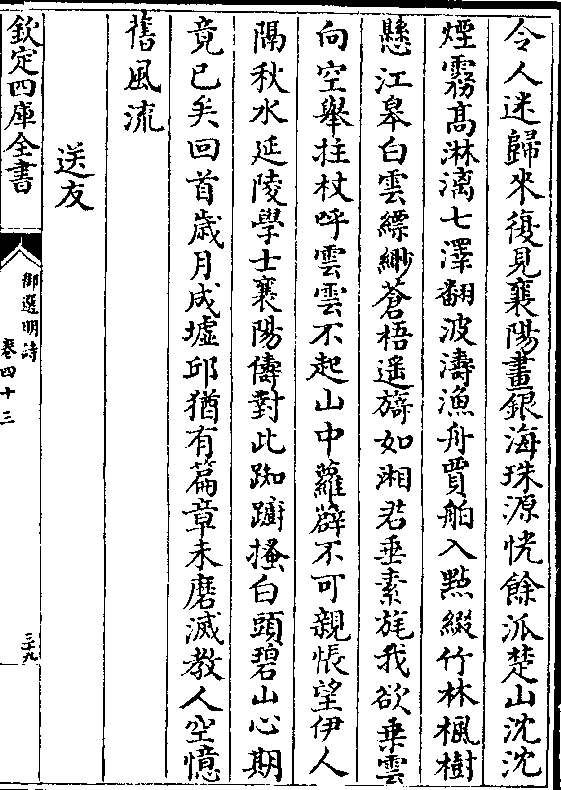 令人迷歸來復見襄陽畫銀海珠源恍餘派楚山沈沈
煙霧髙淋漓七澤翻波濤漁舟賈舶入㸃綴竹林楓樹
懸江皋白雲縹緲蒼梧遥旖如湘君垂素旄我欲乗雲
向空舉拄杖呼雲雲不起山中蘿薜不可親悵望伊人
隔秋水延陵學士襄陽儔對此踟躕搔白頭碧山心期
竟已矣回首嵗月成墟邱猶有篇章未磨滅教人空憶
舊風流
送友
欽定四庫全書
御選明詩
卷四十三
三九